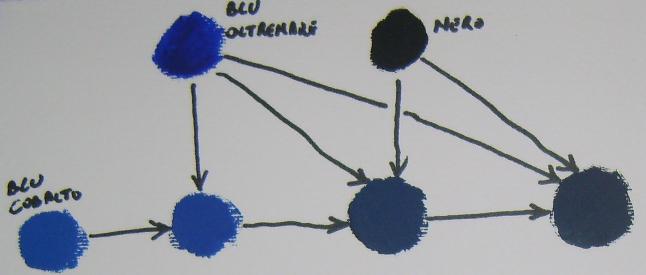 BLU
OLTREMARE
NERO
BLU
COBALTO